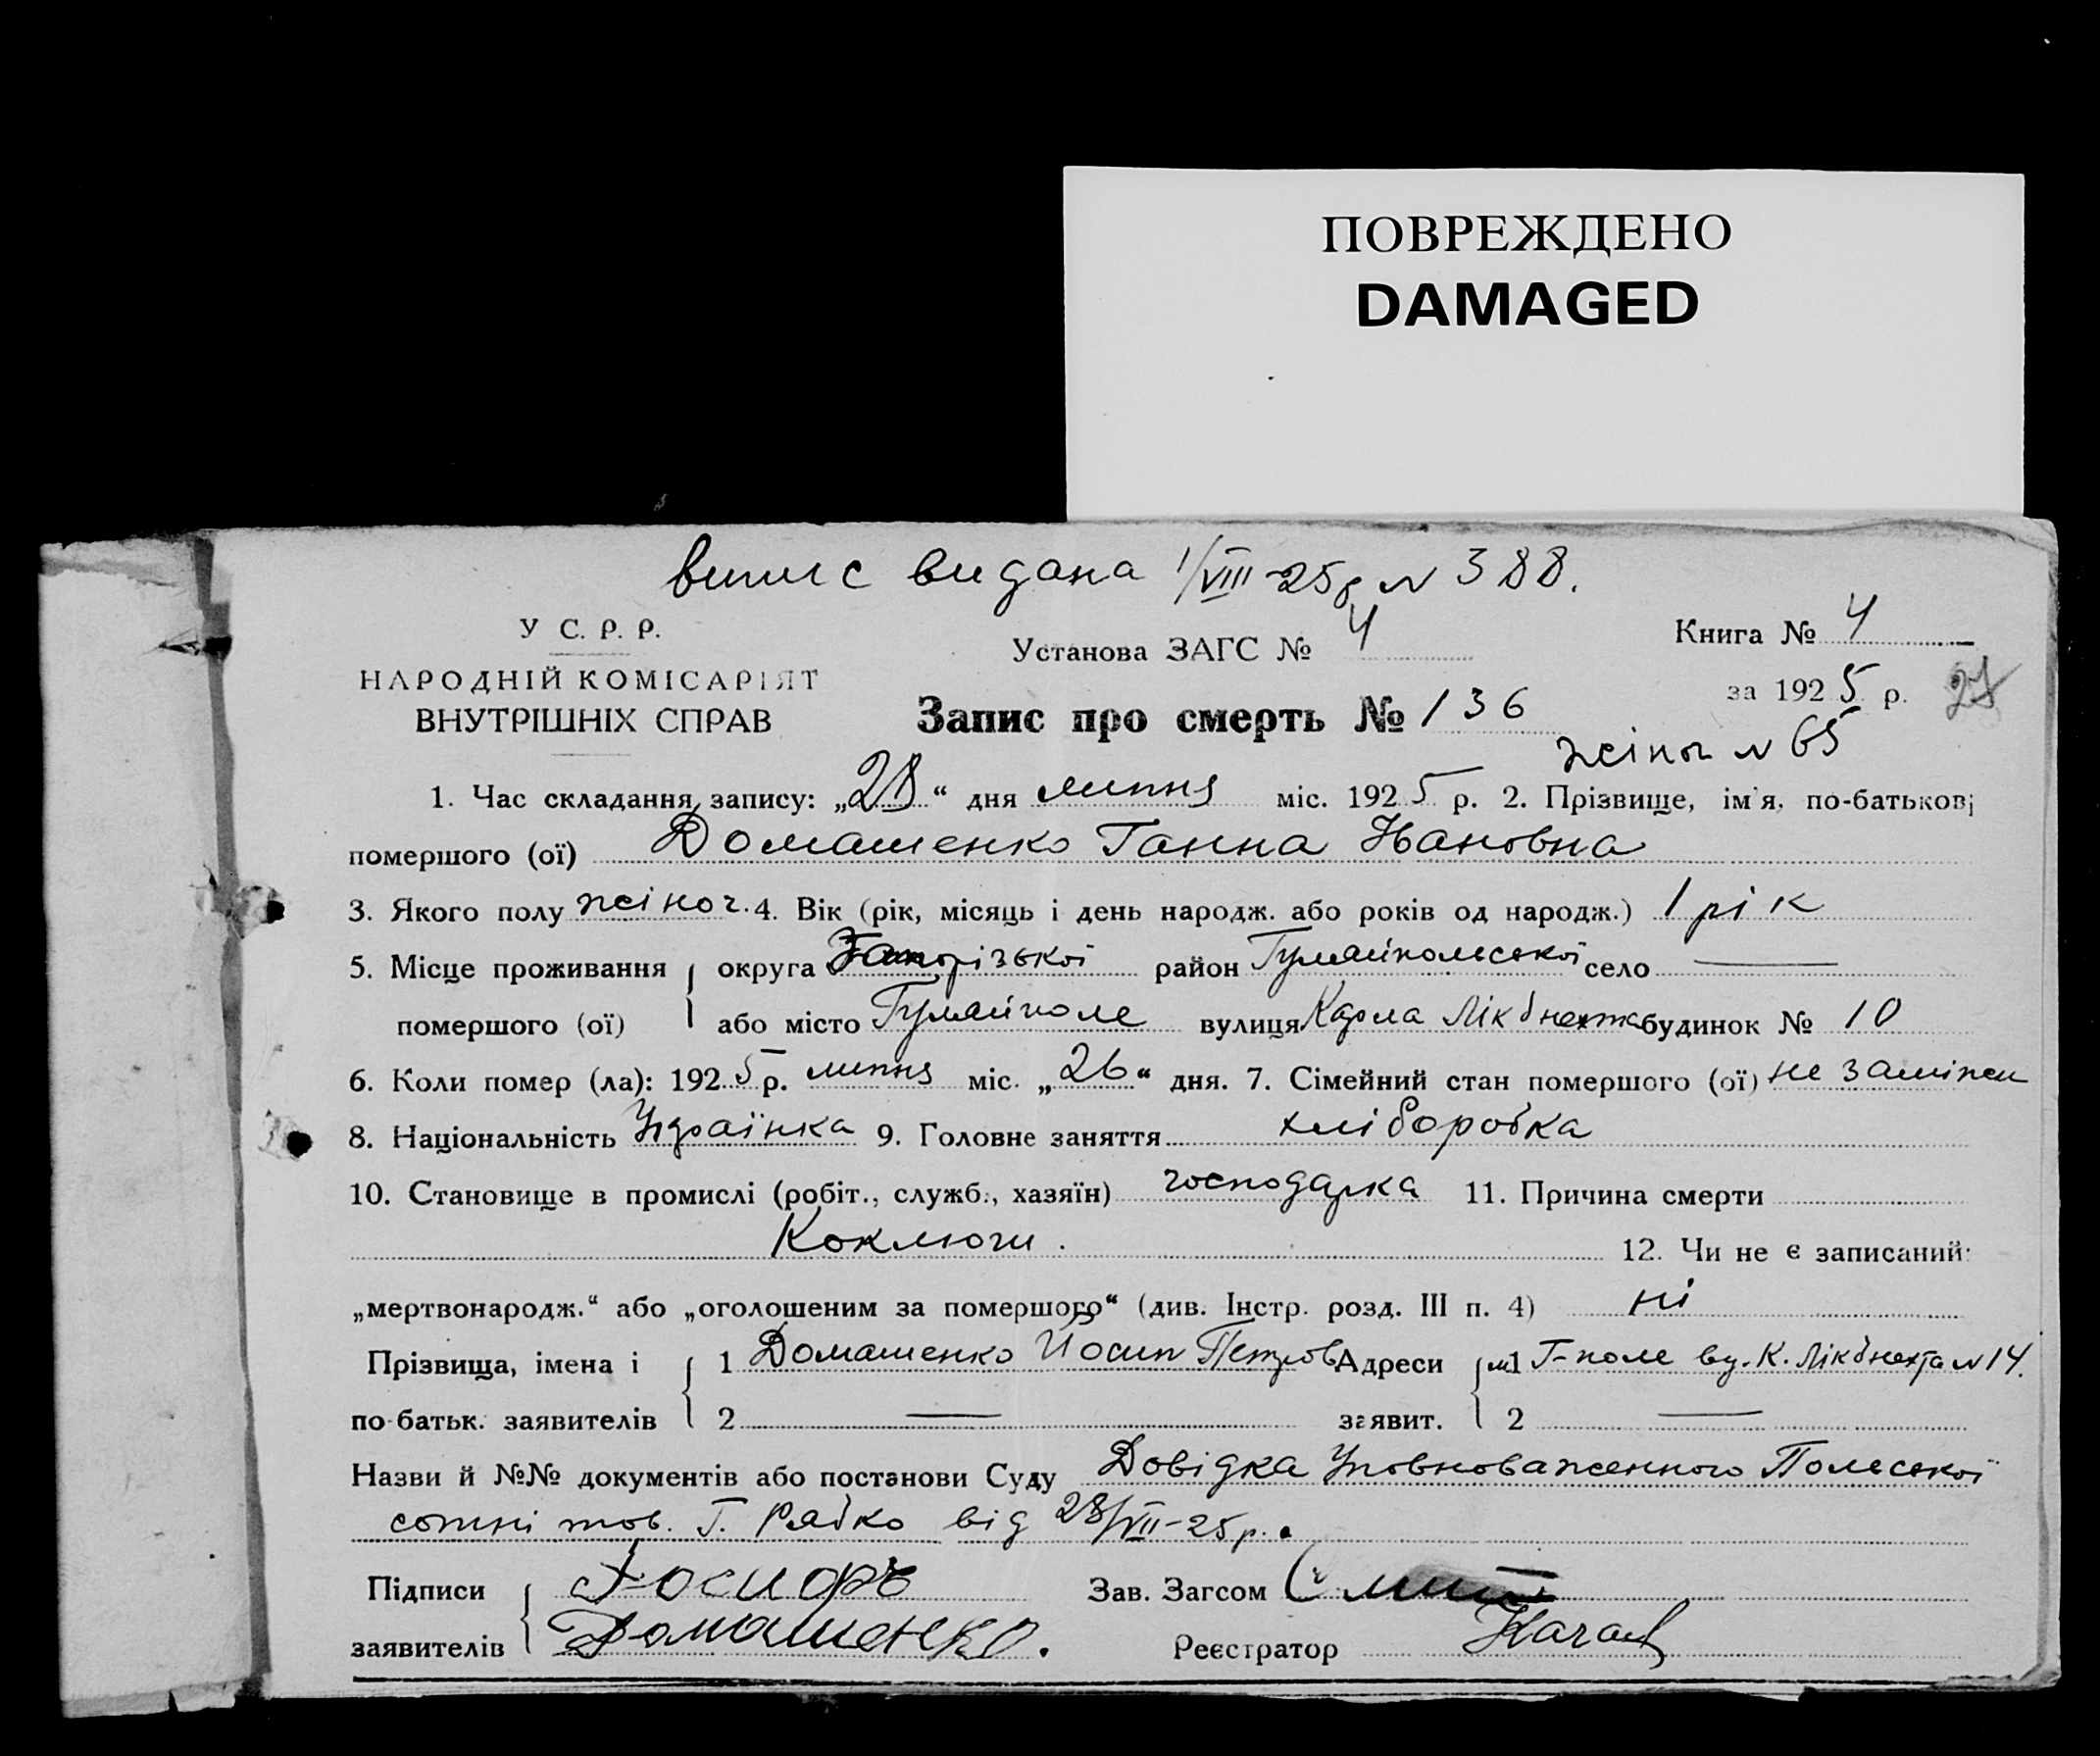 ПОВРЕЖДЕНО
DAMAGED
випис видана 1/VIII-25р N 388.
У С. Р. Р.
НАРОДНІЙ КОМІСАРІЯТ
ВНУТРІШНІХ СПРАВ
Установа ЗАГС № 4
Книга № 4
за 1925 р. 27
Запис про смерть № 136
жіноч N 65
1. Час складання запису: „28“ дня липня міс. 1925 р. 2. Прізвище, ім'я, по-батькові
помершого (ої) Домашенко Ганна Івановна
3. Якого полу жіноч. 4. Вік (рік, місяць і день народж. або років од народж.) 1 рік
5. Місце проживання округа Запорізької район Гуляйпольської село —
помершого (ої) або місто Гуляйполе вулиця Карла Лікбнехта будинок № 10
6. Коли помер (ла): 1925 р. липня міс. „26“ дня. 7. Сімейний стан помершого (ої) не заміжем
8. Національність Українка 9. Головне заняття хліборобка
10. Становище в промислі (робіт., служб., хазяїн) господарка 11. Причина смерти
Коклюги. 12. Чи не є записаний:
„мертвонародж.“ або „оголошеним за помершого“ (див. Інстр. розд. III п. 4) ні
Прізвища, імена і 1 Домашенко Йосип Петров Адреси 1 Г-поле ву. К. Лікбнехта N 14.
по-батьк. заявителів 2 — заявит. 2 —
Назви й №№ документів або постанови Суду Довідка Уповноваженного Польської
сотні тов. Г. Рябко від 28/VII-25р.
Підписи Іосифъ Зав. Загсом
заявителів Домашенко. Реєстратор